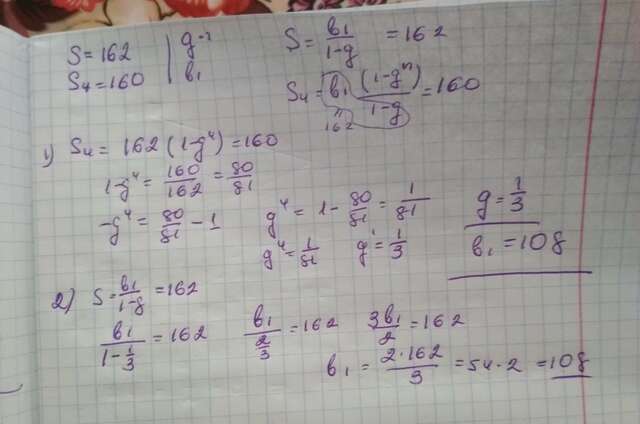 S = 162 | g - ?
S₄ = 160 | b₁
S = b₁/(1-g) = 162
S₄ = b₁(1-gⁿ)/(1-g) = 160
" 162
1) S₄ = 162(1-g⁴) = 160
1-g⁴ = 160/162 = 80/81
-g⁴ = 80/81 - 1
g⁴ = 1 - 80/81 = 1/81
g⁴ = 1/81 g = 1/3
g = 1/3
b₁ = 108
2) S = b₁/(1-g) = 162
b₁/(1-1/3) = 162 b₁/(2/3) = 162 3b₁/2 = 162
b₁ = 2·162/3 = 54·2 = 108